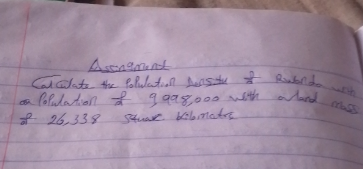 Assignment
Calculate the Population Density of Rwanda with
a Population of 9,998,000 with a land mass
of 26,338 square kilometre